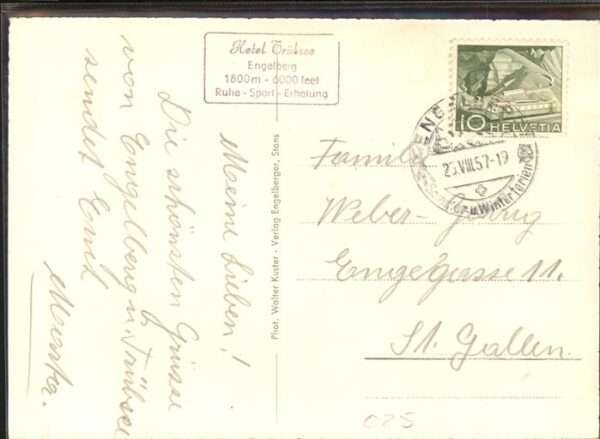 Hotel Trübsee
Engelberg
1800m - 6000 feet
Ruhe - Sport - Erholung
Meine Lieben!
Die schönsten Grüsse
von Engelberg u. Trübsee
sendet Euch
Phot. Walter Küster - Verlag Engelberger, Stans
10 HELVETIA
VIII.57-19
Familie
Weber-
11.
St. Gallen.
025